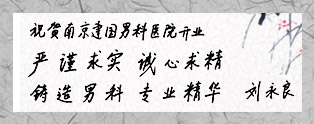 祝贺南京建国男科医院开业
严谨求实 诚心求精
铸造男科 专业精华 刘永良